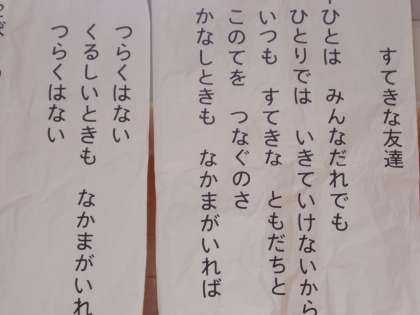 すてきな友達
ひとは　みんなだれでも
ひとりでは　いきていけないから
いつも　すてきな　ともだちと
このてを　つなぐのさ
かなしときも　なかまがいれば
つらくはない
くるしいときも　なかまがいれ
つらくはない